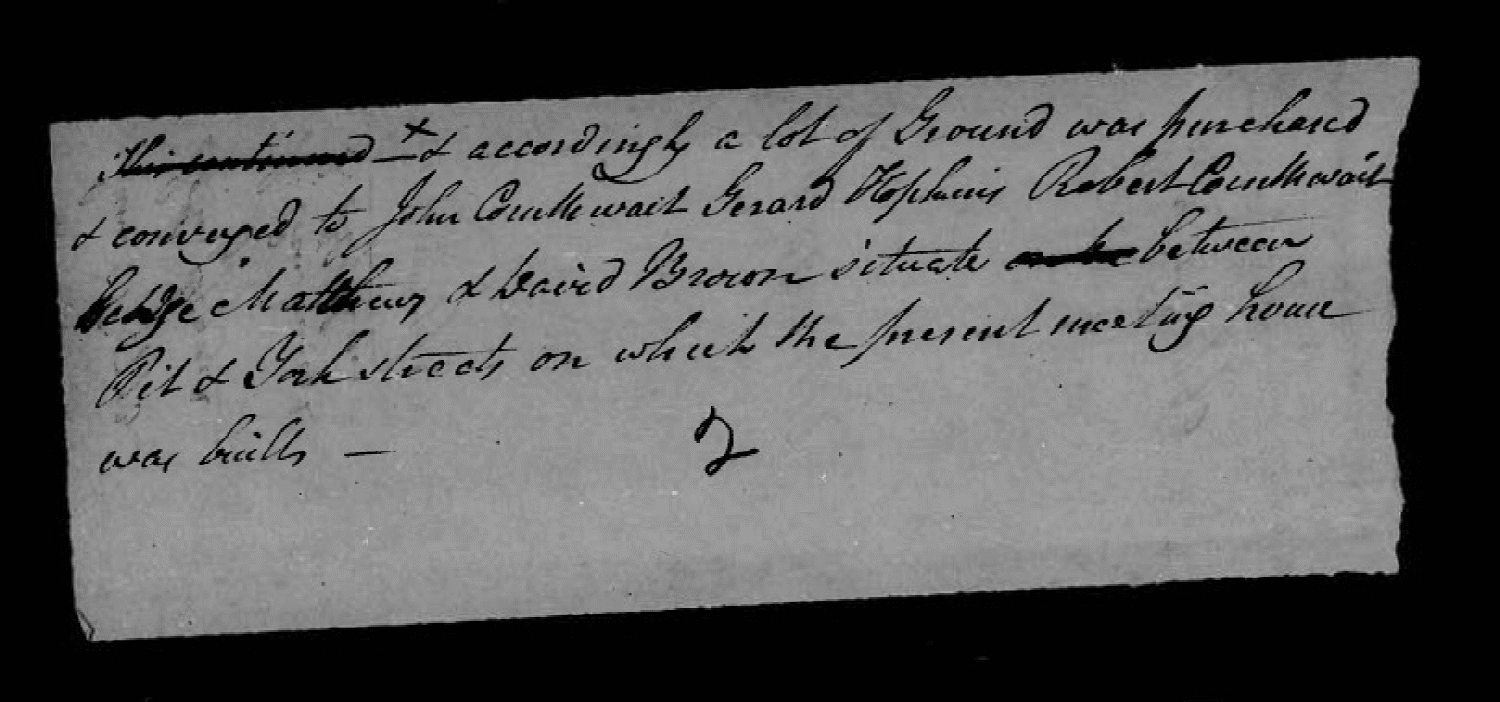 ~~This continued~~ x & accordingly a lot of Ground was purchased
& conveyed to John Cornthwait Gerard Hopkins Robert Cornthwait
George Matthews & David Brown situate between
Pit & York streets on which the present meeting house
was built —
2